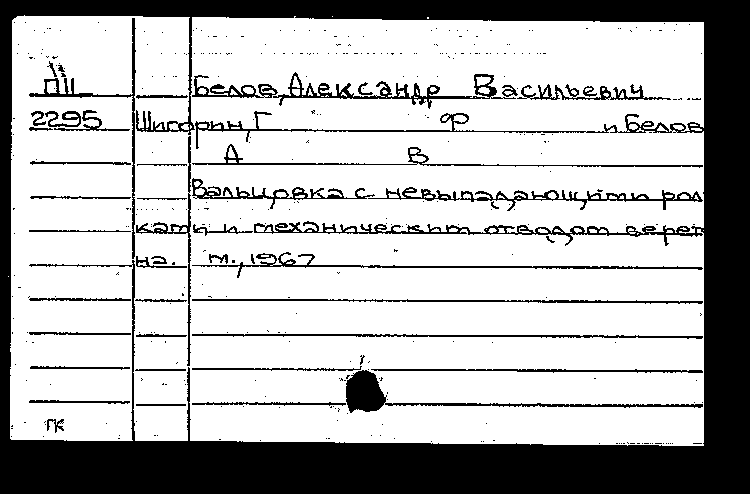 ПЦ Белов, Александр Васильевич
2295 Шигорин, Г Ф и Белов
А В
Вальцовка с невыпадающими рол
ками и механическим отводом верете
на. М., 1967
ГК